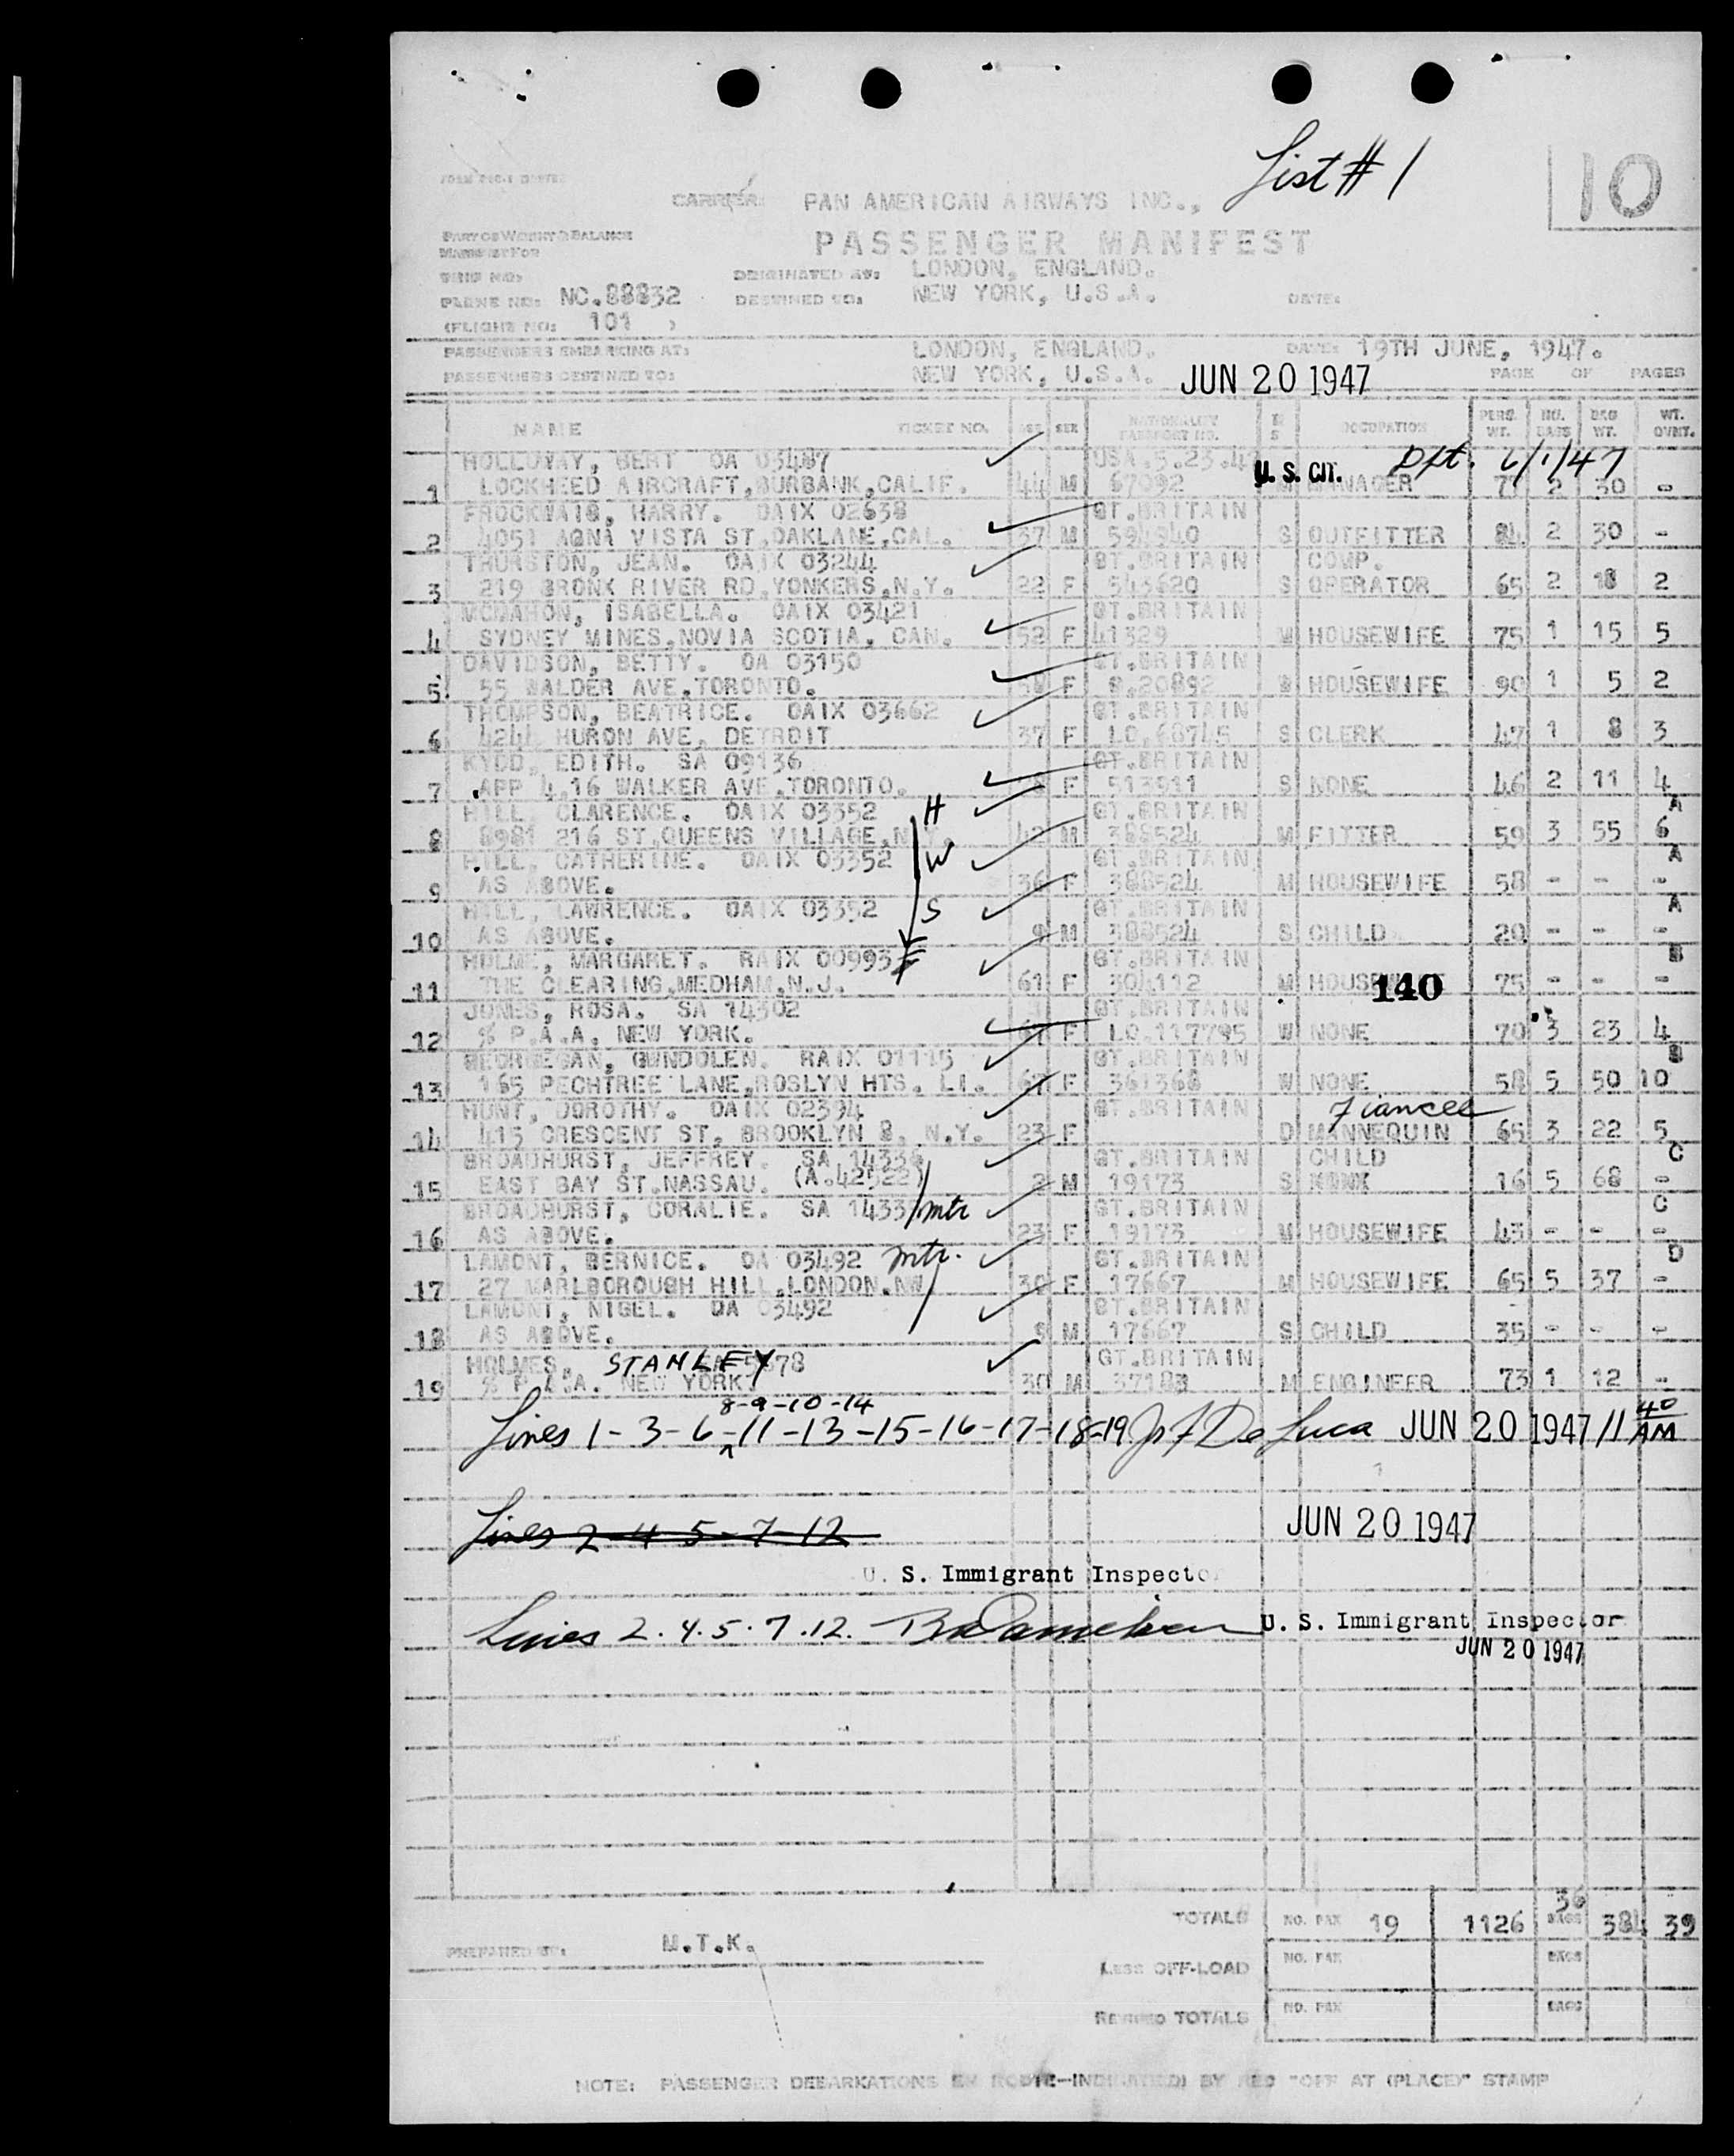 List # 1
10
CARRIER: PAN AMERICAN AIRWAYS INC.,
PART OF WEIGHT & BALANCE
MANIFEST FOR
PASSENGER MANIFEST
TRIP NO:
ORIGINATED AT: LONDON, ENGLAND.
PLANE NO: NC.88832 DESTINED TO: NEW YORK, U.S.A. DATE:
(FLIGHT NO: 101 )
PASSENGERS EMBARKING AT: LONDON, ENGLAND. DATE: 19TH JUNE, 1947.
PASSENGERS DESTINED TO: NEW YORK, U.S.A. JUN 20 1947 PAGE OF PAGES
NAME TICKET NO. AGE SEX NATIONALITY PASSPORT NO. M S OCCUPATION PERS. WT. NO. BAGS BAG WT. WT. OVMT.
HOLLOWAY, BERT OA 03487 USA.5.23.4 U. S. CIT. Dpt. 6/1/47
1 LOCKHEED AIRCRAFT,BURBANK,CALIF. 44 M 67092 MANAGER 2 30 -
HARRY. OAIX 02638 GT.BRITAIN
2 4051 AGNA VISTA ST,OAKLANE,CAL. 37 M 594940 S OUTFITTER 84 2 30 -
THURSTON, JEAN. OAIX 03244 GT.BRITAIN COMP.
3 219 BRONX RIVER RD,YONKERS,N.Y. 22 F 543620 S OPERATOR 65 2 18 2
MCMAHON, ISABELLA. OAIX 03421 GT.BRITAIN
4 SYDNEY MINES,NOVIA SCOTIA, CAN. 52 F 41329 HOUSEWIFE 75 1 15 5
DAVIDSON, BETTY. OA 03150 GT.BRITAIN
5 55 WALDER AVE,TORONTO. F 20892 HOUSEWIFE 90 1 5 2
THOMPSON, BEATRICE. OAIX 03662 GT.BRITAIN
6 4244 HURON AVE, DETROIT 37 F LO.68745 S CLERK 47 1 8 3
KYDD, EDITH. SA 09136 GT.BRITAIN
7 APP 4,16 WALKER AVE,TORONTO. F 513911 S NONE 46 2 11 4
HILL, CLARENCE. OAIX 03352 H GT.BRITAIN A
8 8981 216 ST,QUEENS VILLAGE,N.Y. 42 M 388524 M FITTER 59 3 55 6
HILL, CATHERINE. OAIX 03352 W GT.BRITAIN A
9 AS ABOVE. 36 F 388524 M HOUSEWIFE 58 - - -
HILL, LAWRENCE. OAIX 03352 S GT.BRITAIN A
10 AS ABOVE. 9 M 388524 S CHILD 20 - - -
HULME, MARGARET. RAIX 00993 GT.BRITAIN B
11 THE CLEARING,MEDHAM,N.J. 61 F 304112 M HOUSEWIFE 140 75 - - -
JONES, ROSA. SA 14302 GT.BRITAIN
12 % P.A.A. NEW YORK. F LO.117795 W NONE 70 3 23 4
GEORGEGAN, GWNDOLEN. RAIX 01115 GT.BRITAIN B
13 165 PECHTREE LANE,ROSLYN HTS. LI. 67 F 361368 W NONE 58 5 50 10
HUNT, DOROTHY. OAIX 02394 GT.BRITAIN Fiancee
14 415 CRESCENT ST, BROOKLYN 8, N.Y. 23 F D MANNEQUIN 65 3 22 5
BROADHURST, JEFFREY. SA 14336 GT.BRITAIN CHILD C
15 EAST BAY ST.NASSAU. (A.42522) 2 M 19173 S 16 5 68 -
BROADHURST, CORALIE. SA 1433 mtr GT.BRITAIN C
16 AS ABOVE. 23 F 19173 M HOUSEWIFE 43 - - -
LAMONT, BERNICE. OA 03492 mtr. GT.BRITAIN D
17 27 MARLBOROUGH HILL,LONDON.NW 30 F 17667 M HOUSEWIFE 65 5 37 -
LAMONT, NIGEL. OA 03492 GT.BRITAIN
18 AS ABOVE. M 17667 S CHILD 35 - - -
HOLMES, STANLEY 5878 GT.BRITAIN
19 % P.A.A. NEW YORK. 30 M 37183 M ENGINEER 73 1 12 -
8-9-10-14
Lines 1-3-6-11-13-15-16-17-18-19 De Luca JUN 20 1947 11 40 AM
Lines 2-4-5-7-12 JUN 20 1947
U. S. Immigrant Inspector
Lines 2.4.5.7.12. U. S. Immigrant Inspector
JUN 20 1947
TOTALS NO. PAX 19 1126 36 BAGS 384 39
PREPARED BY: M.T.K.
LESS OFF-LOAD NO. PAX BAGS
REVISED TOTALS NO. PAX BAGS
NOTE: PASSENGER DEBARKATIONS EN ROUTE-INDICATED BY RED "OFF AT (PLACE)" STAMP